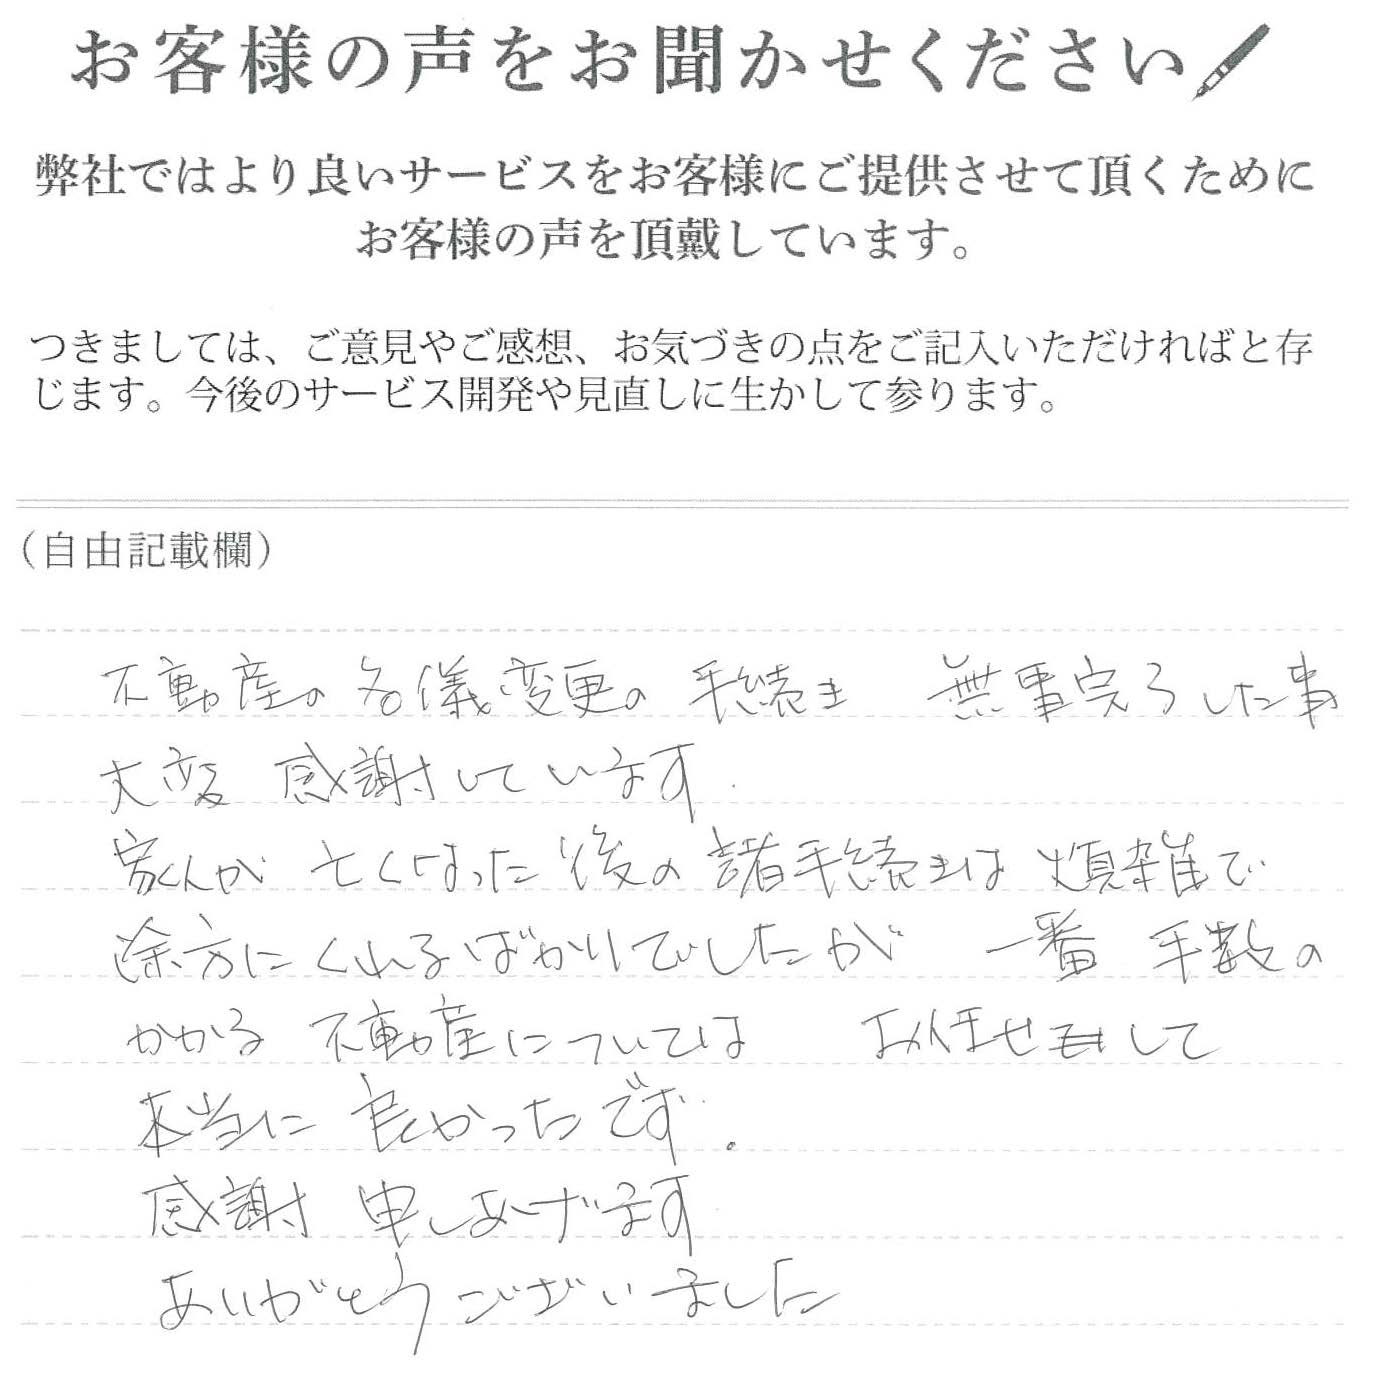 お客様の声をお聞かせください
弊社ではより良いサービスをお客様にご提供させて頂くために
お客様の声を頂戴しています。
つきましては、ご意見やご感想、お気づきの点をご記入いただければと存
じます。今後のサービス開発や見直しに生かして参ります。
（自由記載欄）
不動産の名儀変更の 手続き 無事完了した事
大変 感謝しています.
家人が 亡くなった後の 諸手続きは 煩雑で
途方にくれるばかりでしたが 一番 手数の
かかる 不動産については お任せをして
本当に 良かったです.
感謝 申しあげます
ありがとうございました